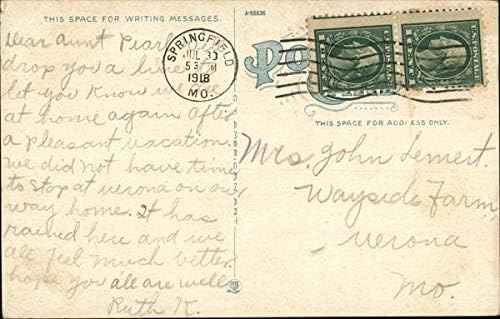 THIS SPACE FOR WRITING MESSAGES.
A-55536
Dear Aunt Pearl
drop you a line
let you know we are
at home again after
a pleasant vacation.
we did not have time
to stop at verona on our
way home. It has
rained here and we
all feel much better.
hope you all are well
Ruth K.
SPRINGFIELD
JUL 30
5 PM
1918
MO.
THIS SPACE FOR ADDRESS ONLY.
Mrs. John Lemert.
Wayside Farm
Verona
Mo.